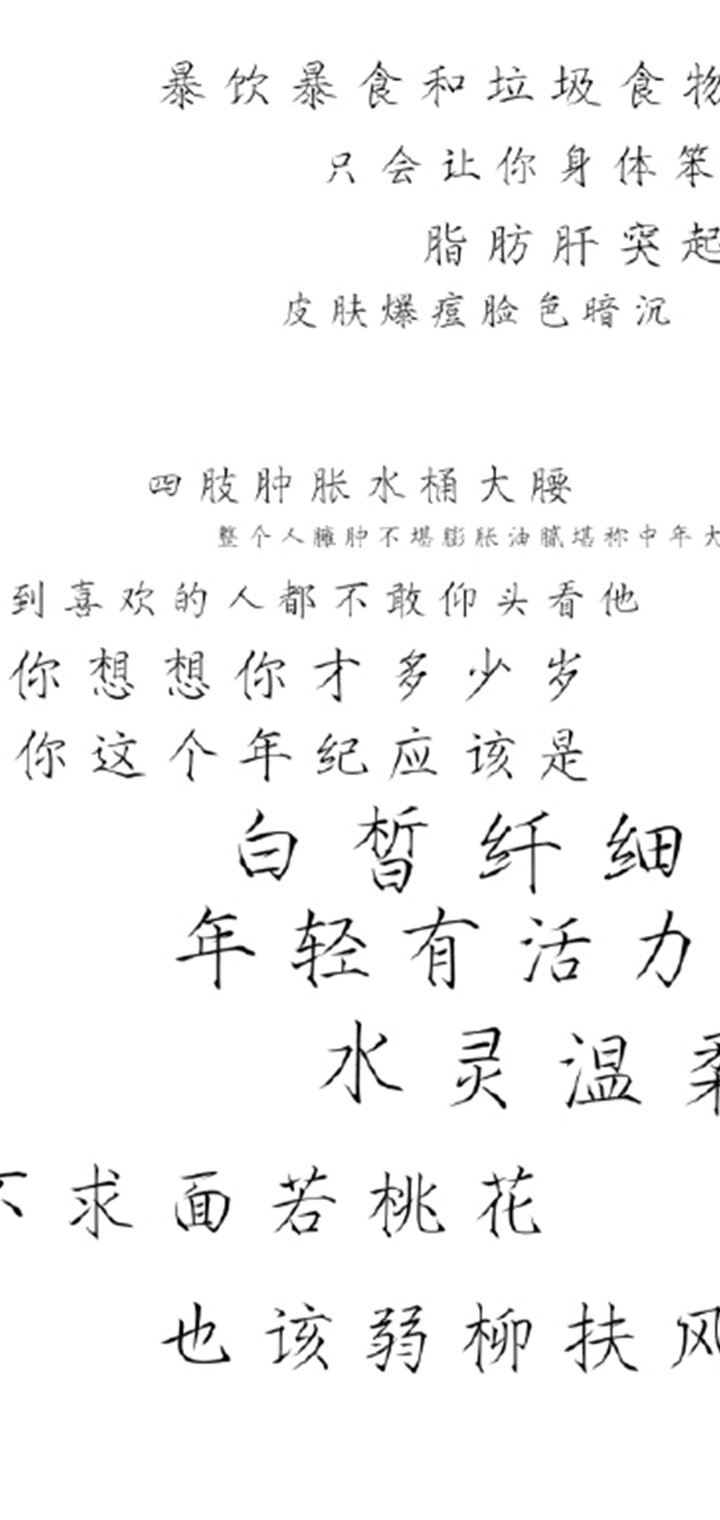 暴饮暴食和垃圾食物
只会让你身体笨
脂肪肝突起
皮肤爆痘脸色暗沉
四肢肿胀水桶大腰
整个人臃肿不堪膨胀油腻堪称中年大
到喜欢的人都不敢仰头看他
你想想你才多少岁
你这个年纪应该是
白皙纤细
年轻有活力
水灵温柔
不求面若桃花
也该弱柳扶风